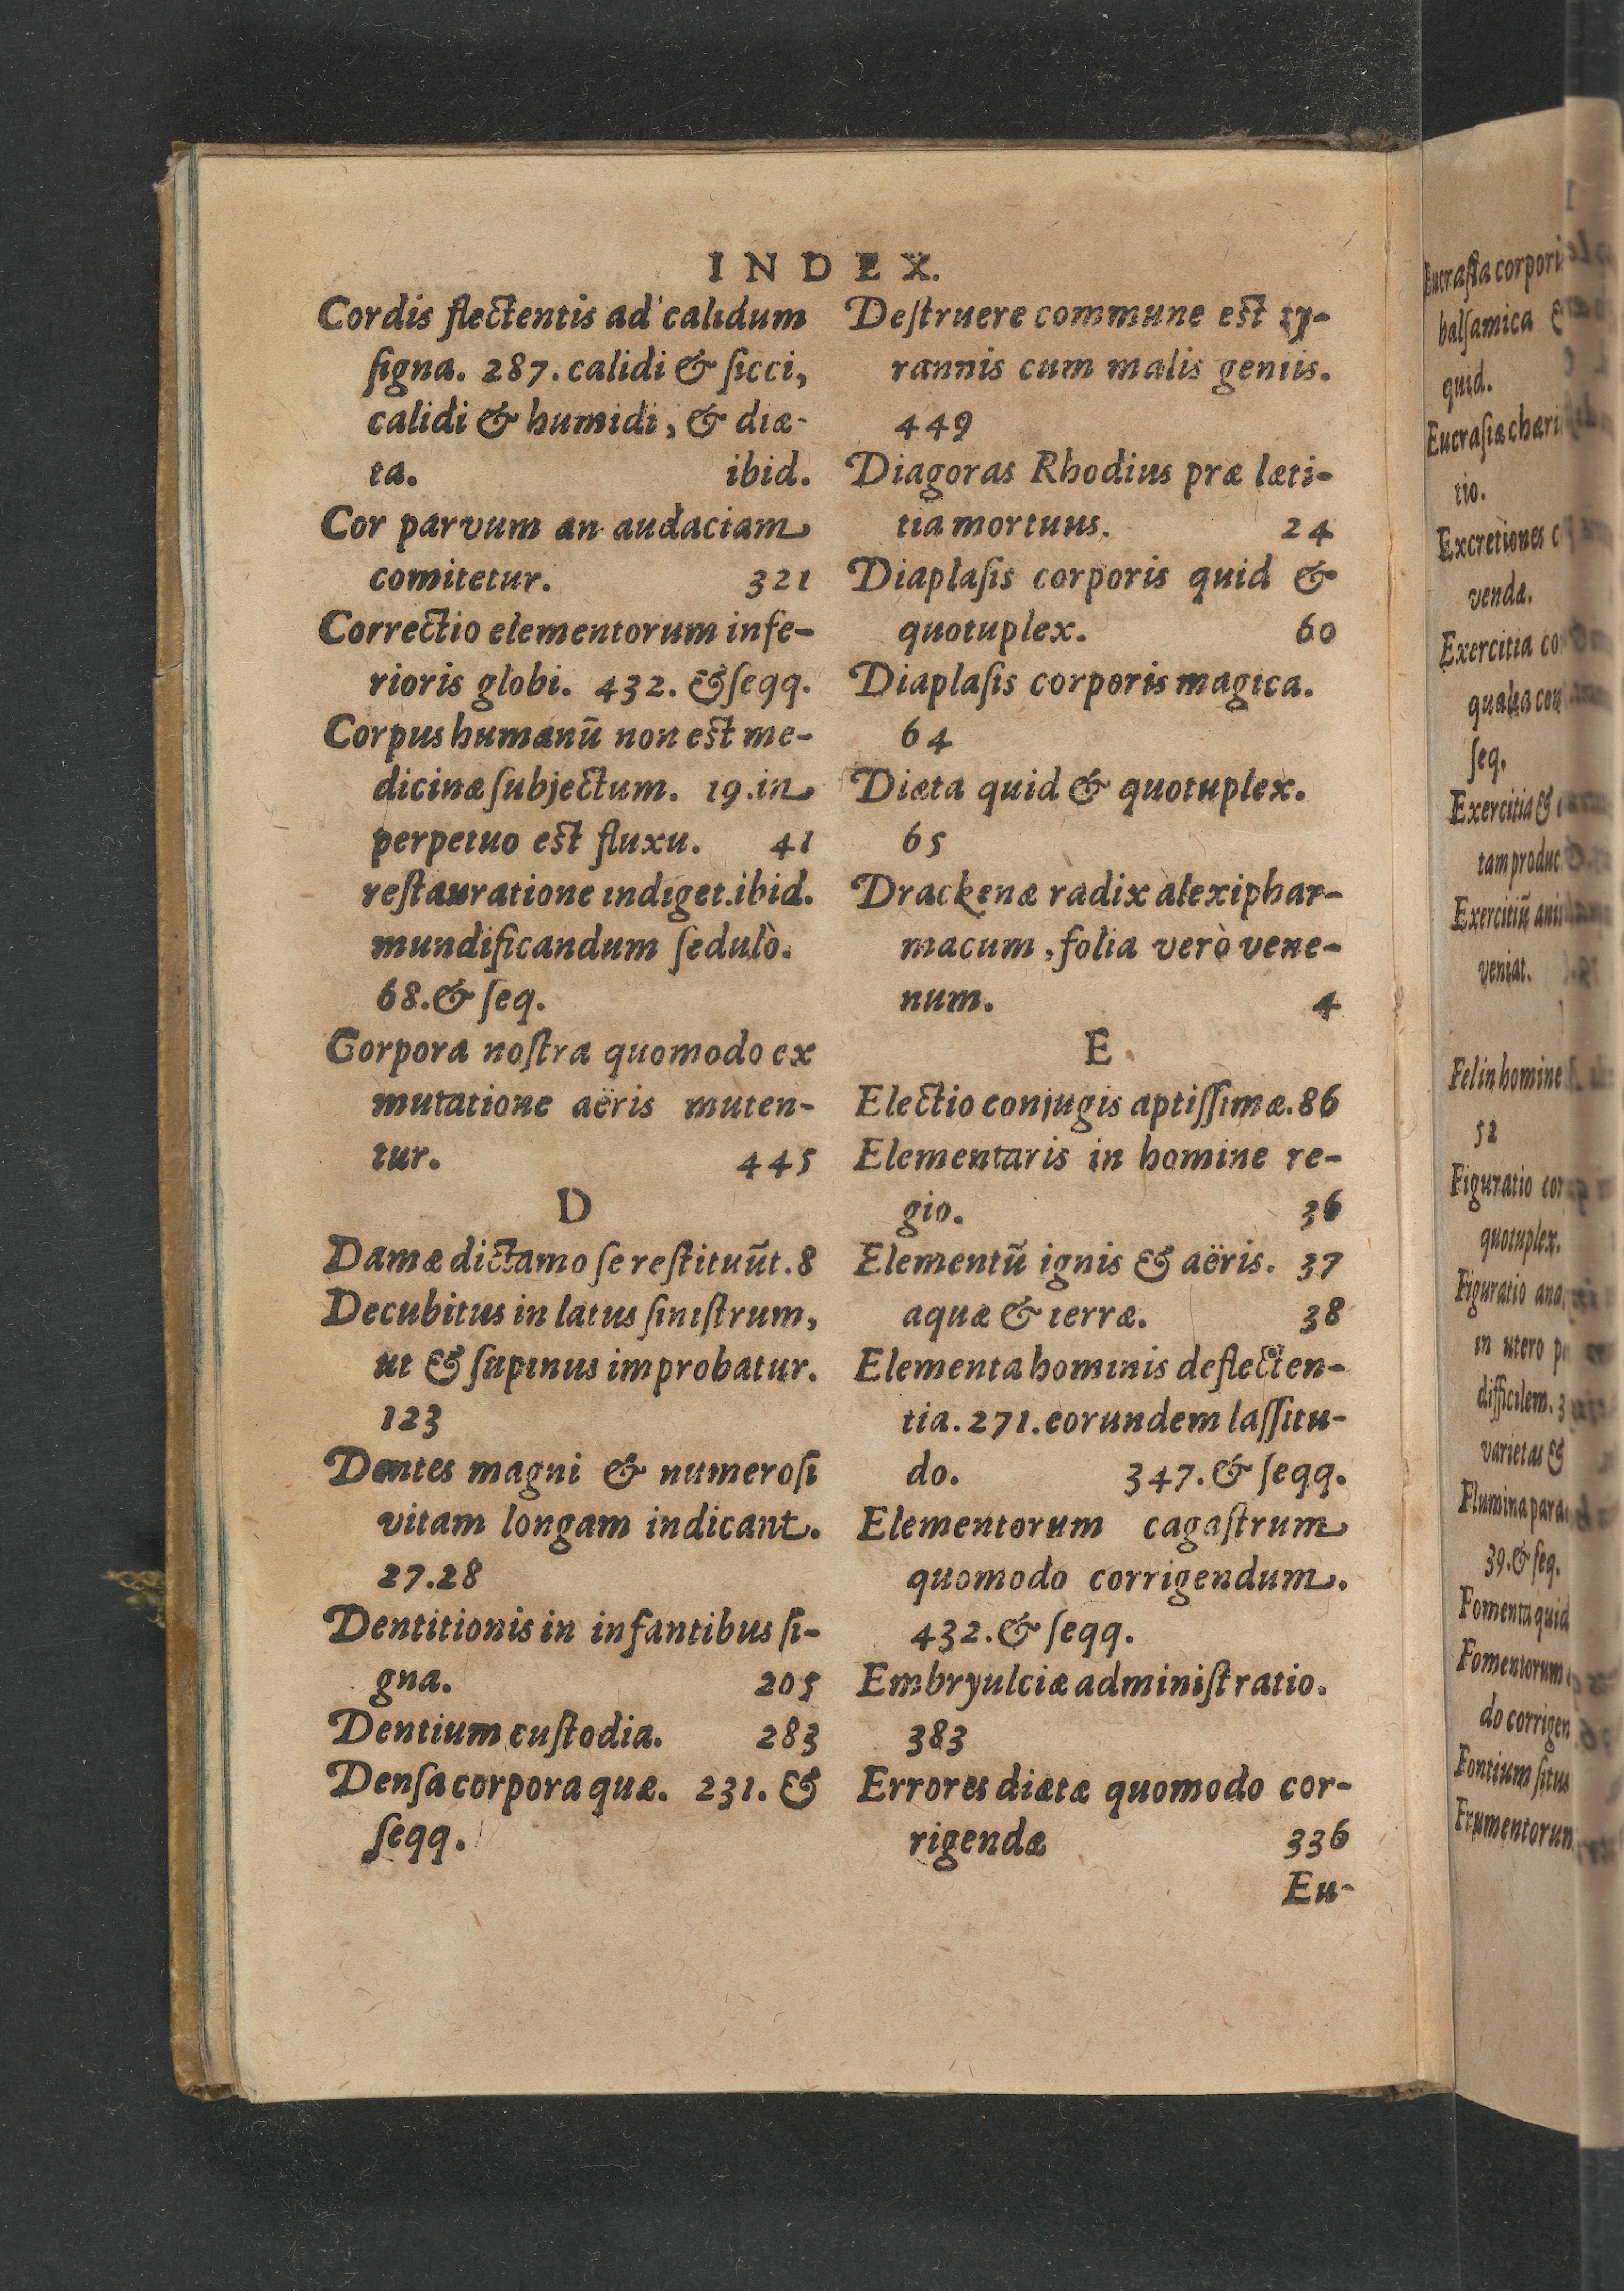 INDEX.
Cordis flectentis ad calidum
ſigna. 287. calidi & ſicci,
calidi & humidi, & diæ-
ta. ibid.
Cor parvum an audaciam
comitetur. 321
Correctio elementorum infe-
rioris globi. 432. & ſeqq.
Corpus humanū non eſt me-
dicinæ ſubjectum. 19. in
perpetuo eſt fluxu. 41
reſtauratione indiget. ibid.
mundificandum ſedulò.
68. & ſeq.
Corpora noſtra quomodo ex
mutatione aëris muten-
tur. 445
D
Damæ dictamo ſe reſtituūt. 8
Decubitus in latus ſiniſtrum,
ut & ſupinus improbatur.
123
Dentes magni & numeroſi
vitam longam indicant.
27. 28
Dentitionis in infantibus ſi-
gna. 205
Dentium cuſtodia. 283
Denſa corpora quæ. 231. &
ſeqq.
Deſtruere commune eſt ty-
rannis cum malis geniis.
449
Diagoras Rhodius præ læti-
tia mortuus. 24
Diaplaſis corporis quid &
quotuplex. 60
Diaplaſis corporis magica.
64
Diæta quid & quotuplex.
65
Drackenæ radix alexiphar-
macum, folia verò vene-
num. 4
E
Electio conjugis aptiſſimæ. 86
Elementaris in homine re-
gio. 36
Elementū ignis & aëris. 37
aquæ & terræ. 38
Elementa hominis deflecten-
tia. 271. eorundem laſſitu-
do. 347. & ſeqq.
Elementorum cagaſtrum
quomodo corrigendum.
432. & ſeqq.
Embryulciæ adminiſtratio.
383
Errores diætæ quomodo cor-
rigendæ 336
Eu-
Eucraſia corporis
balſamica &
quid.
Eucraſiæ
tio.
Excretiones
vendæ.
Exercitia
qualia
ſeq.
Exercitia &
tam
Exercitiū
veniat.
Fel in homine
52
Figuratio
quotuplex.
Figuratio
in utero
difficilem.
varietas &
Flumina
39. & ſeq.
Fomenta quid
Fomentorum
do
Fontium ſitus